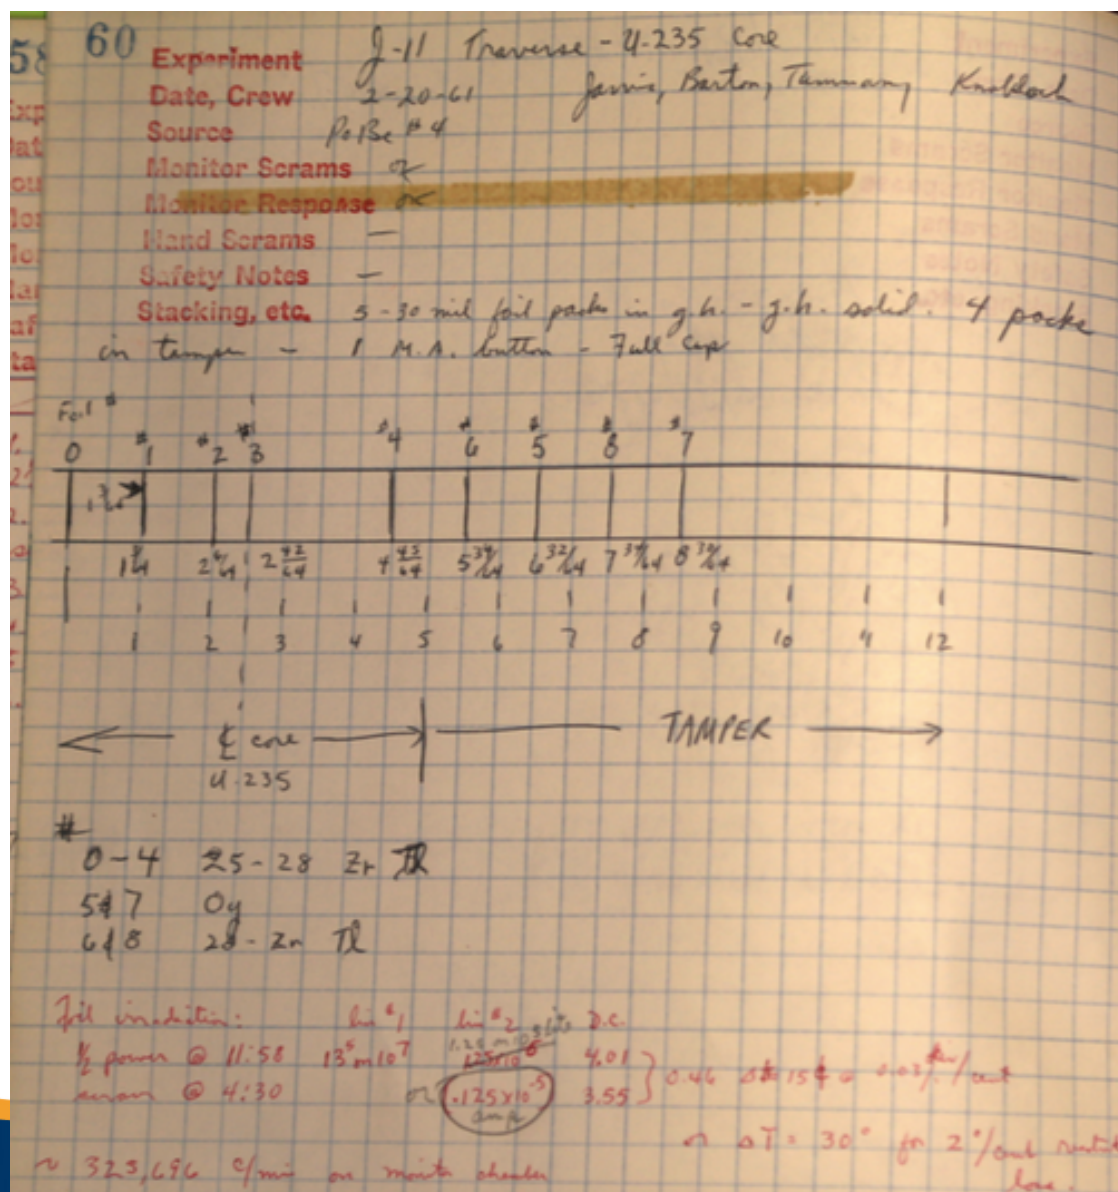 58 60
Experiment J-11 Traverse - U-235 Core
Date, Crew 2-20-61 Jarvis, Barton, Tammany, Knobloch
Source PoBe #4
Monitor Scrams ok
Monitor Response ok
Hand Scrams —
Safety Notes —
Stacking, etc. 5-30 mil foil packs in g.h. - g.h. solid. 4 packs
in tamper - 1 M.A. button - Full Cap
Foil #
0 #1 #2 #3 #4 #6 #5 #8 #7
2 42/64 4 43/64 6 32/64
1 2 3 4 5 6 7 8 9 10 12
₵ core TAMPER
U-235
#
0-4 25-28 Zr Tl
5&7 Oy
6&8 28-Zr Tl
Foil irradiation: lin #1 lin #2 D.C.
½ power @ 11:58 4.01
scram @ 4:30 .125x10⁻⁵ 3.55 0.46 15¢
amp
ΔT = 30° for 2°/cent
~ 323,696 c/min on monitor chamber